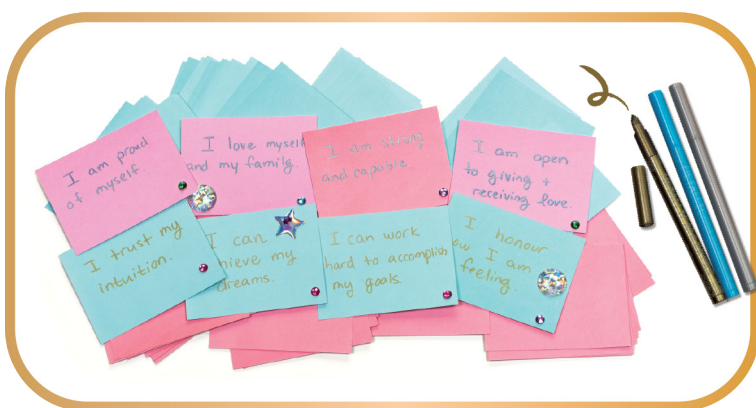 I am proud
of myself.
I love myself
and my family.
I am strong
and capable.
I am open
to giving +
receiving love.
I trust my
intuition.
I can
hieve my
dreams.
I can work
hard to accomplish
my goals.
I honour
ow I am
feeling.